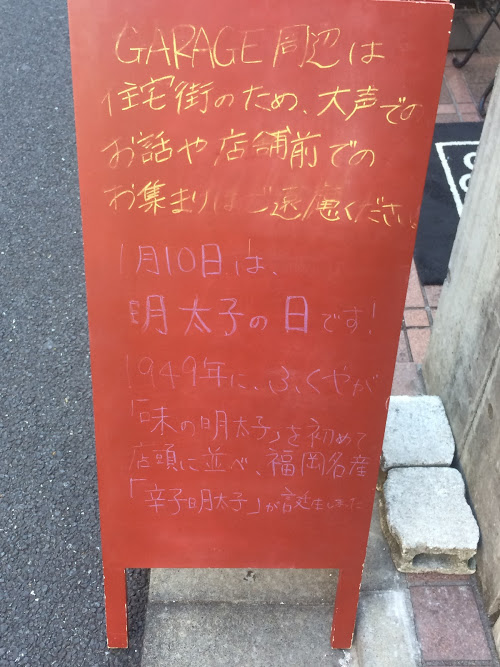 GARAGE周辺は
住宅街のため、大声での
お話や店舗前での
お集まりはご遠慮ください。
1月10日は、
明太子の日です!
1949年に、ふくやが
「味の明太子」を初めて
店頭に並べ、福岡名産
「辛子明太子」が誕生しました